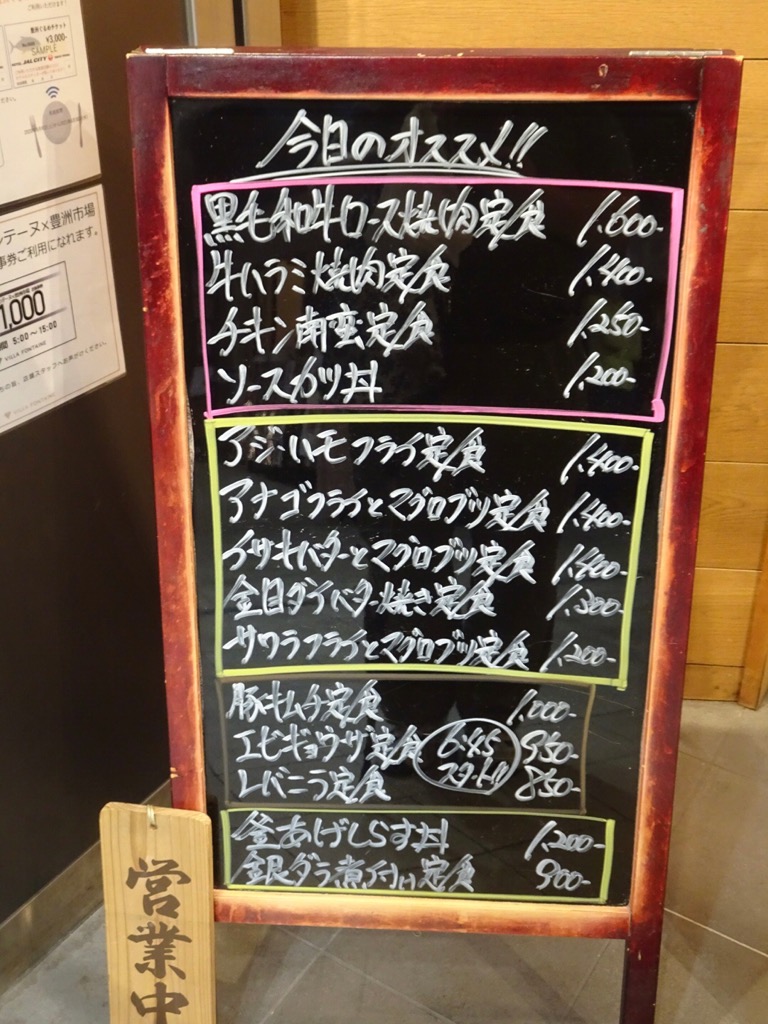 ¥3,000-
SAMPLE
JAL CITY
ンテーヌ×豊洲市場
事券ご利用になれます。
1,000
間 5:00～15:00
VILLA FONTAINE
今日のオススメ!!
黒毛和牛ロース焼肉定食 1,600-
牛ハラミ焼肉定食 1,400-
チキン南蛮定食 1,250-
ソースカツ丼 1,200-
アジ・ハモフライ定食 1,400-
アナゴフライとマグロブツ定食 1,400-
イサキバターとマグロブツ定食 1,400-
金目ダイバター焼き定食 1,300-
サワラフライとマグロブツ定食 1,200-
豚キムチ定食 1,000-
エビギョウザ定食 950-
6:45
スタート!!
レバニラ定食 850-
釜あげしらす丼 1,200-
銀ダラ煮付け定食 900-
営業中